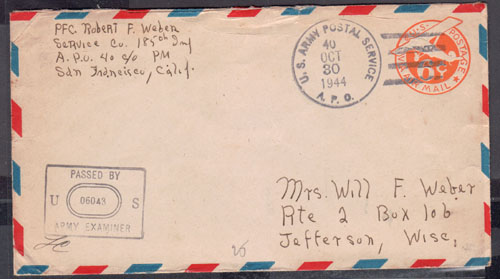 PFC. Robert F. Weber
Service Co. 185th Inf
A. P. O. 40 c/o PM
San Francisco, Calif.
U. S. ARMY POSTAL SERVICE
40
OCT
30
1944
A. P. O.
U.S. POSTAGE
AIR MAIL
PASSED BY
U 06043 S
ARMY EXAMINER
Mrs. Will F. Weber
Rte 2 Box 106
Jefferson, Wisc.